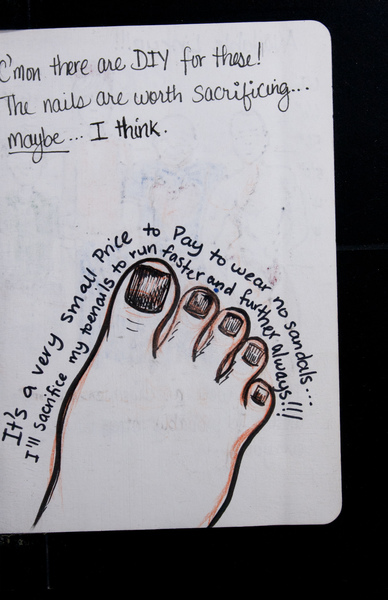 C'mon there are DIY for these!
The nails are worth sacrificing...
maybe... I think.
It's a very small price to pay to wear no sandals...
I'll sacrifice my toenails to run faster and further always!!!